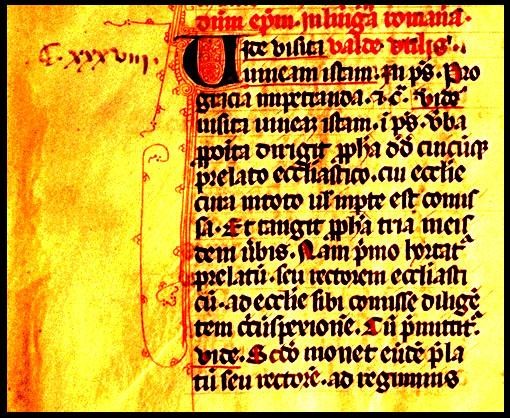 dum epm. in lingua romana.
C. xxxviii.
Iste visita valde utilis.
vineam istam. In ps. Pro
gracia impetranda. ⁊ c̄. vide
uisita uineaz istam. i ps. v̄ba
ꝓpoīta dirigit ꝓpħa dd̄ cuicūqꝫ
prelato eccl̄iastico. cui ecclie
cura in toto ul' in pte est comis
sa. Et tangit ꝓpħa tria in eis
dem v̄bis. Nam p̄mo hortat᷑
prelatū. seu rectorem eccl̄iasti
cū. ad ecclie sibi comisse diligē
tem Cū p̄mittit᷑.
vide. monet p̄la
tū seu rectorē. ad regiminis